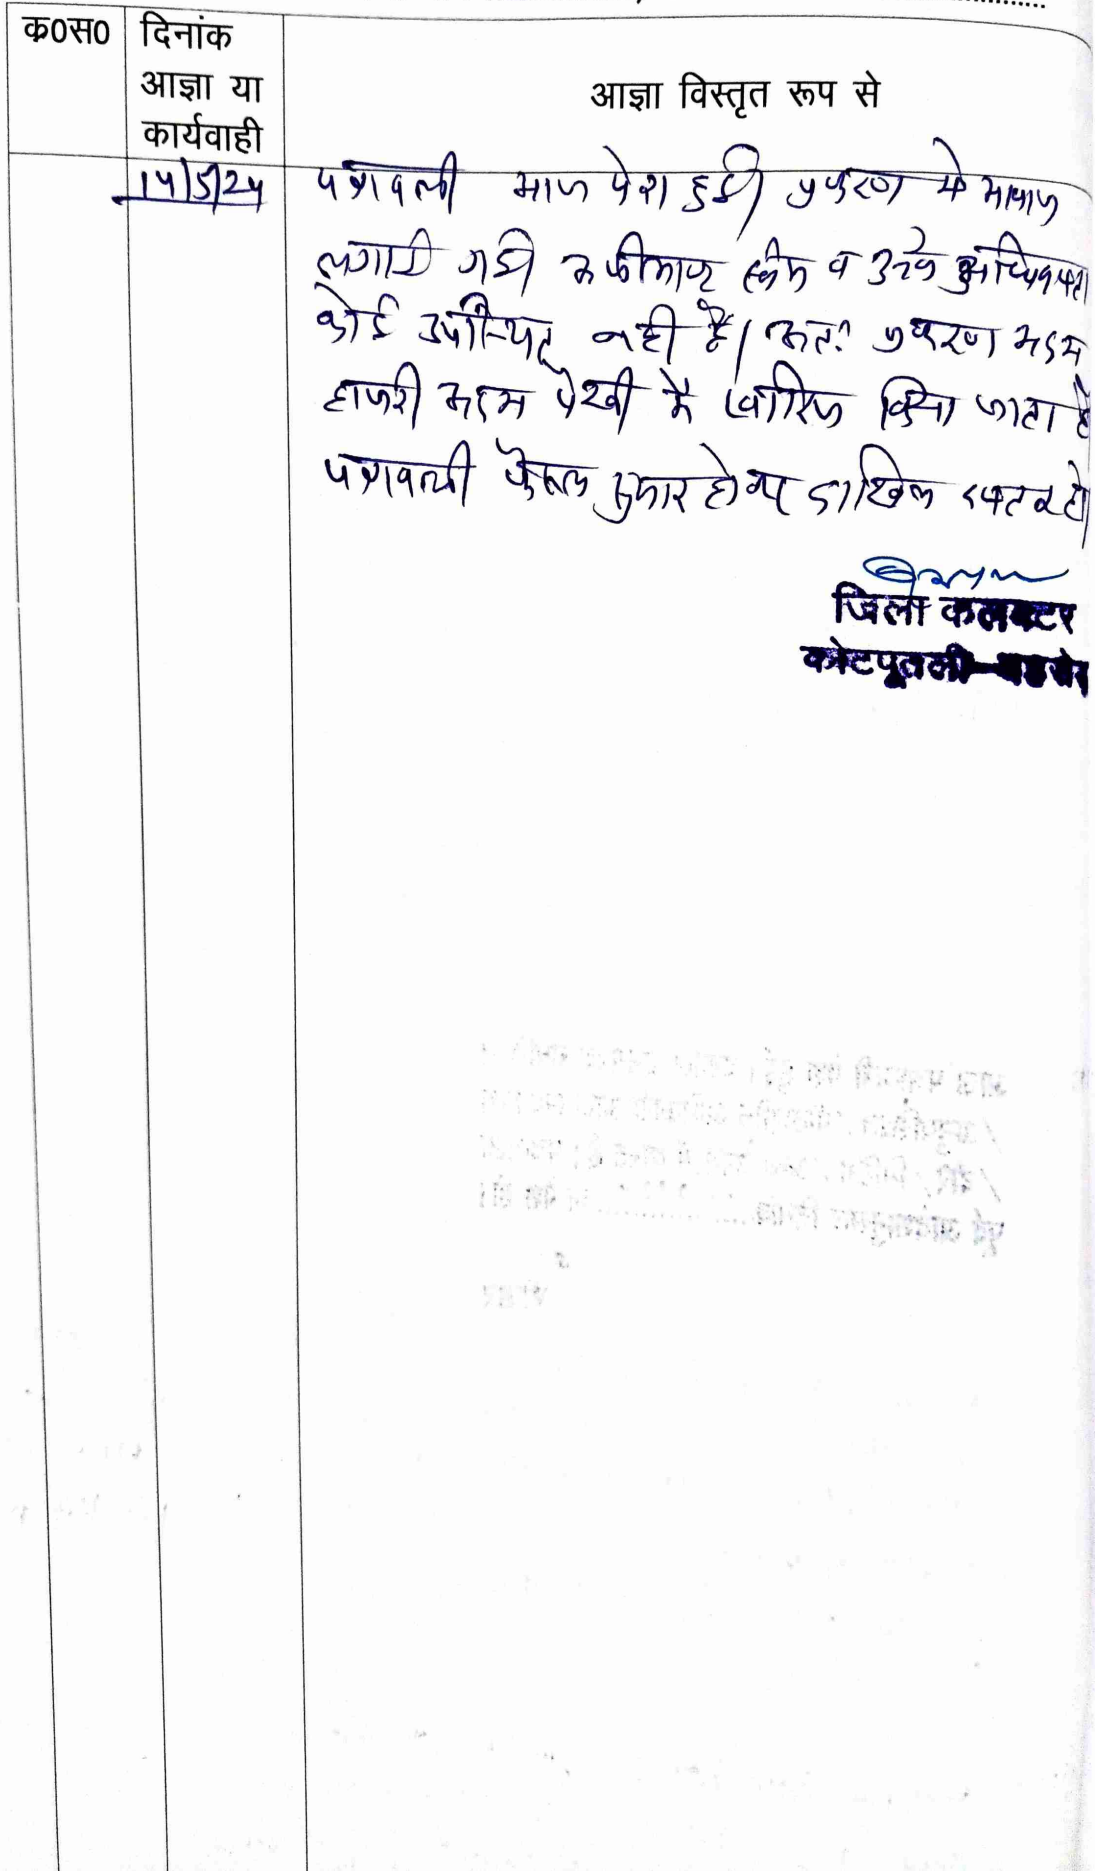 क०स० दिनांक आज्ञा या कार्यवाही आज्ञा विस्तृत रूप से
14/5/24 पत्रावली आज पेश हुई। प्रकरण मे आवाज
लगाई गयी अपीलान्ट स्वंय व उनके अधिवक्ता
कोई उपस्थित नही है। अतः प्रकरण अदम
हाजरी अदम पैरवी में खारिज किया जाता है
पत्रावली फैसल शुमार होकर दाखिल दफ्तर हो।
जिला कलक्टर
कोटपूतली-बहरोड